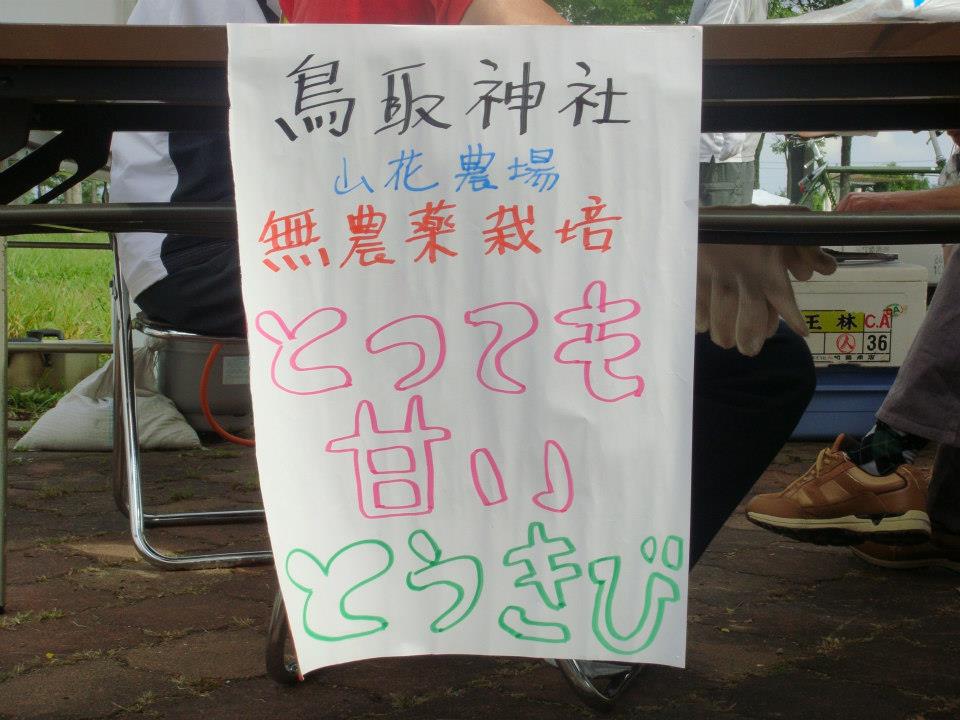 鳥取神社
山花農場
無農薬栽培
とっても
甘い
とうきび
王林 C.A
36